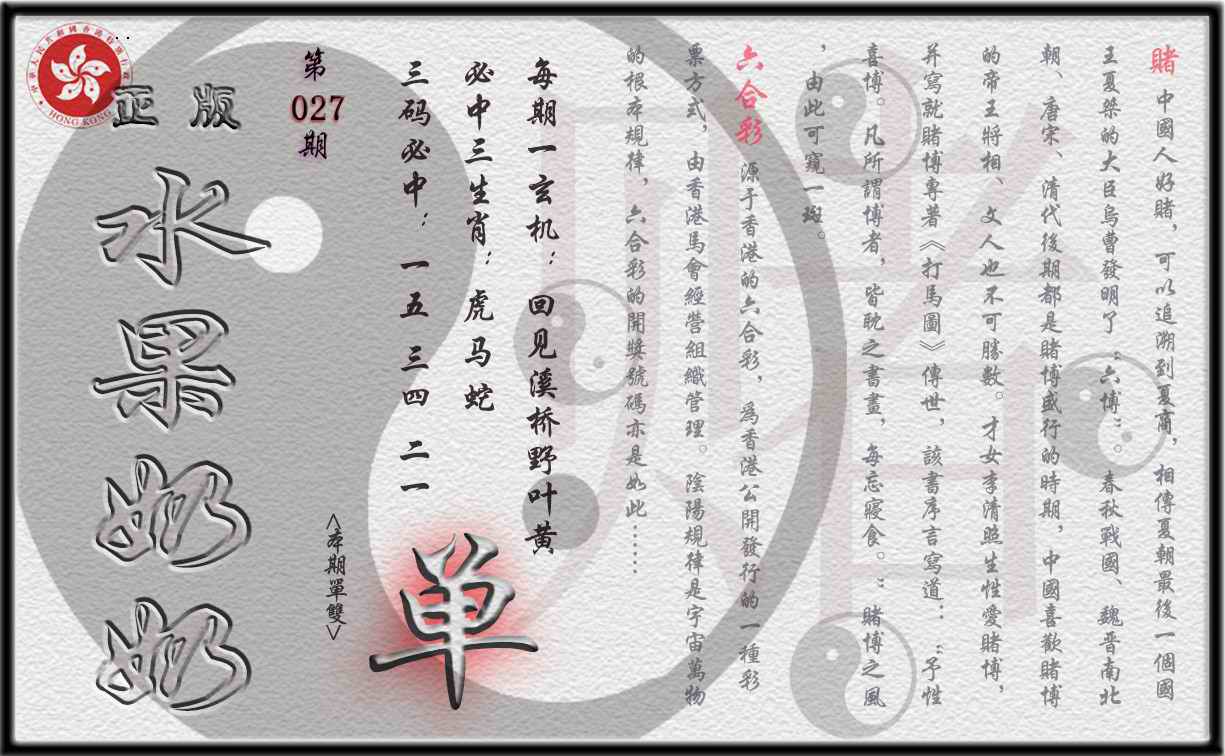 賭 中國人好賭，可以追溯到夏商，相傳夏朝最後一個國
王夏桀的大臣烏曹發明了“六博”。春秋戰國、魏晋南北
朝、唐宋、清代後期都是賭博盛行的時期，中國喜歡賭博
的帝王將相、文人也不可勝數。才女李清照生性愛賭博，
并寫就賭博專著《打馬圖》傳世，該書序言寫道：“予性
喜博。凡所謂博者，皆耽之書畫，每忘寢食。”賭博之風
，由此可窺一斑。
六合彩 源于香港的六合彩，爲香港公開發行的一種彩
票方式，由香港馬會經營組織管理。陰陽規律是宇宙萬物
的根本規律，六合彩的開獎號碼亦是如此……
每期一玄机：回见溪桥野叶黄
必中三生肖：虎马蛇
三码必中：一五 三四 二一
单
<本期單雙>
第
027
期
正版
水果奶奶
中華人民共和國香港特別行政區
HONG KONG